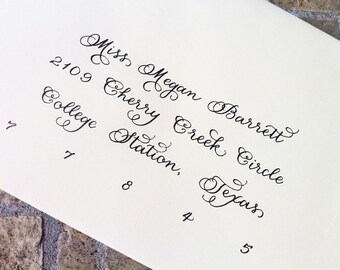 Miss Megan Barrett
2109 Cherry Creek Circle
College Station, Texas
7 7 8 4 5